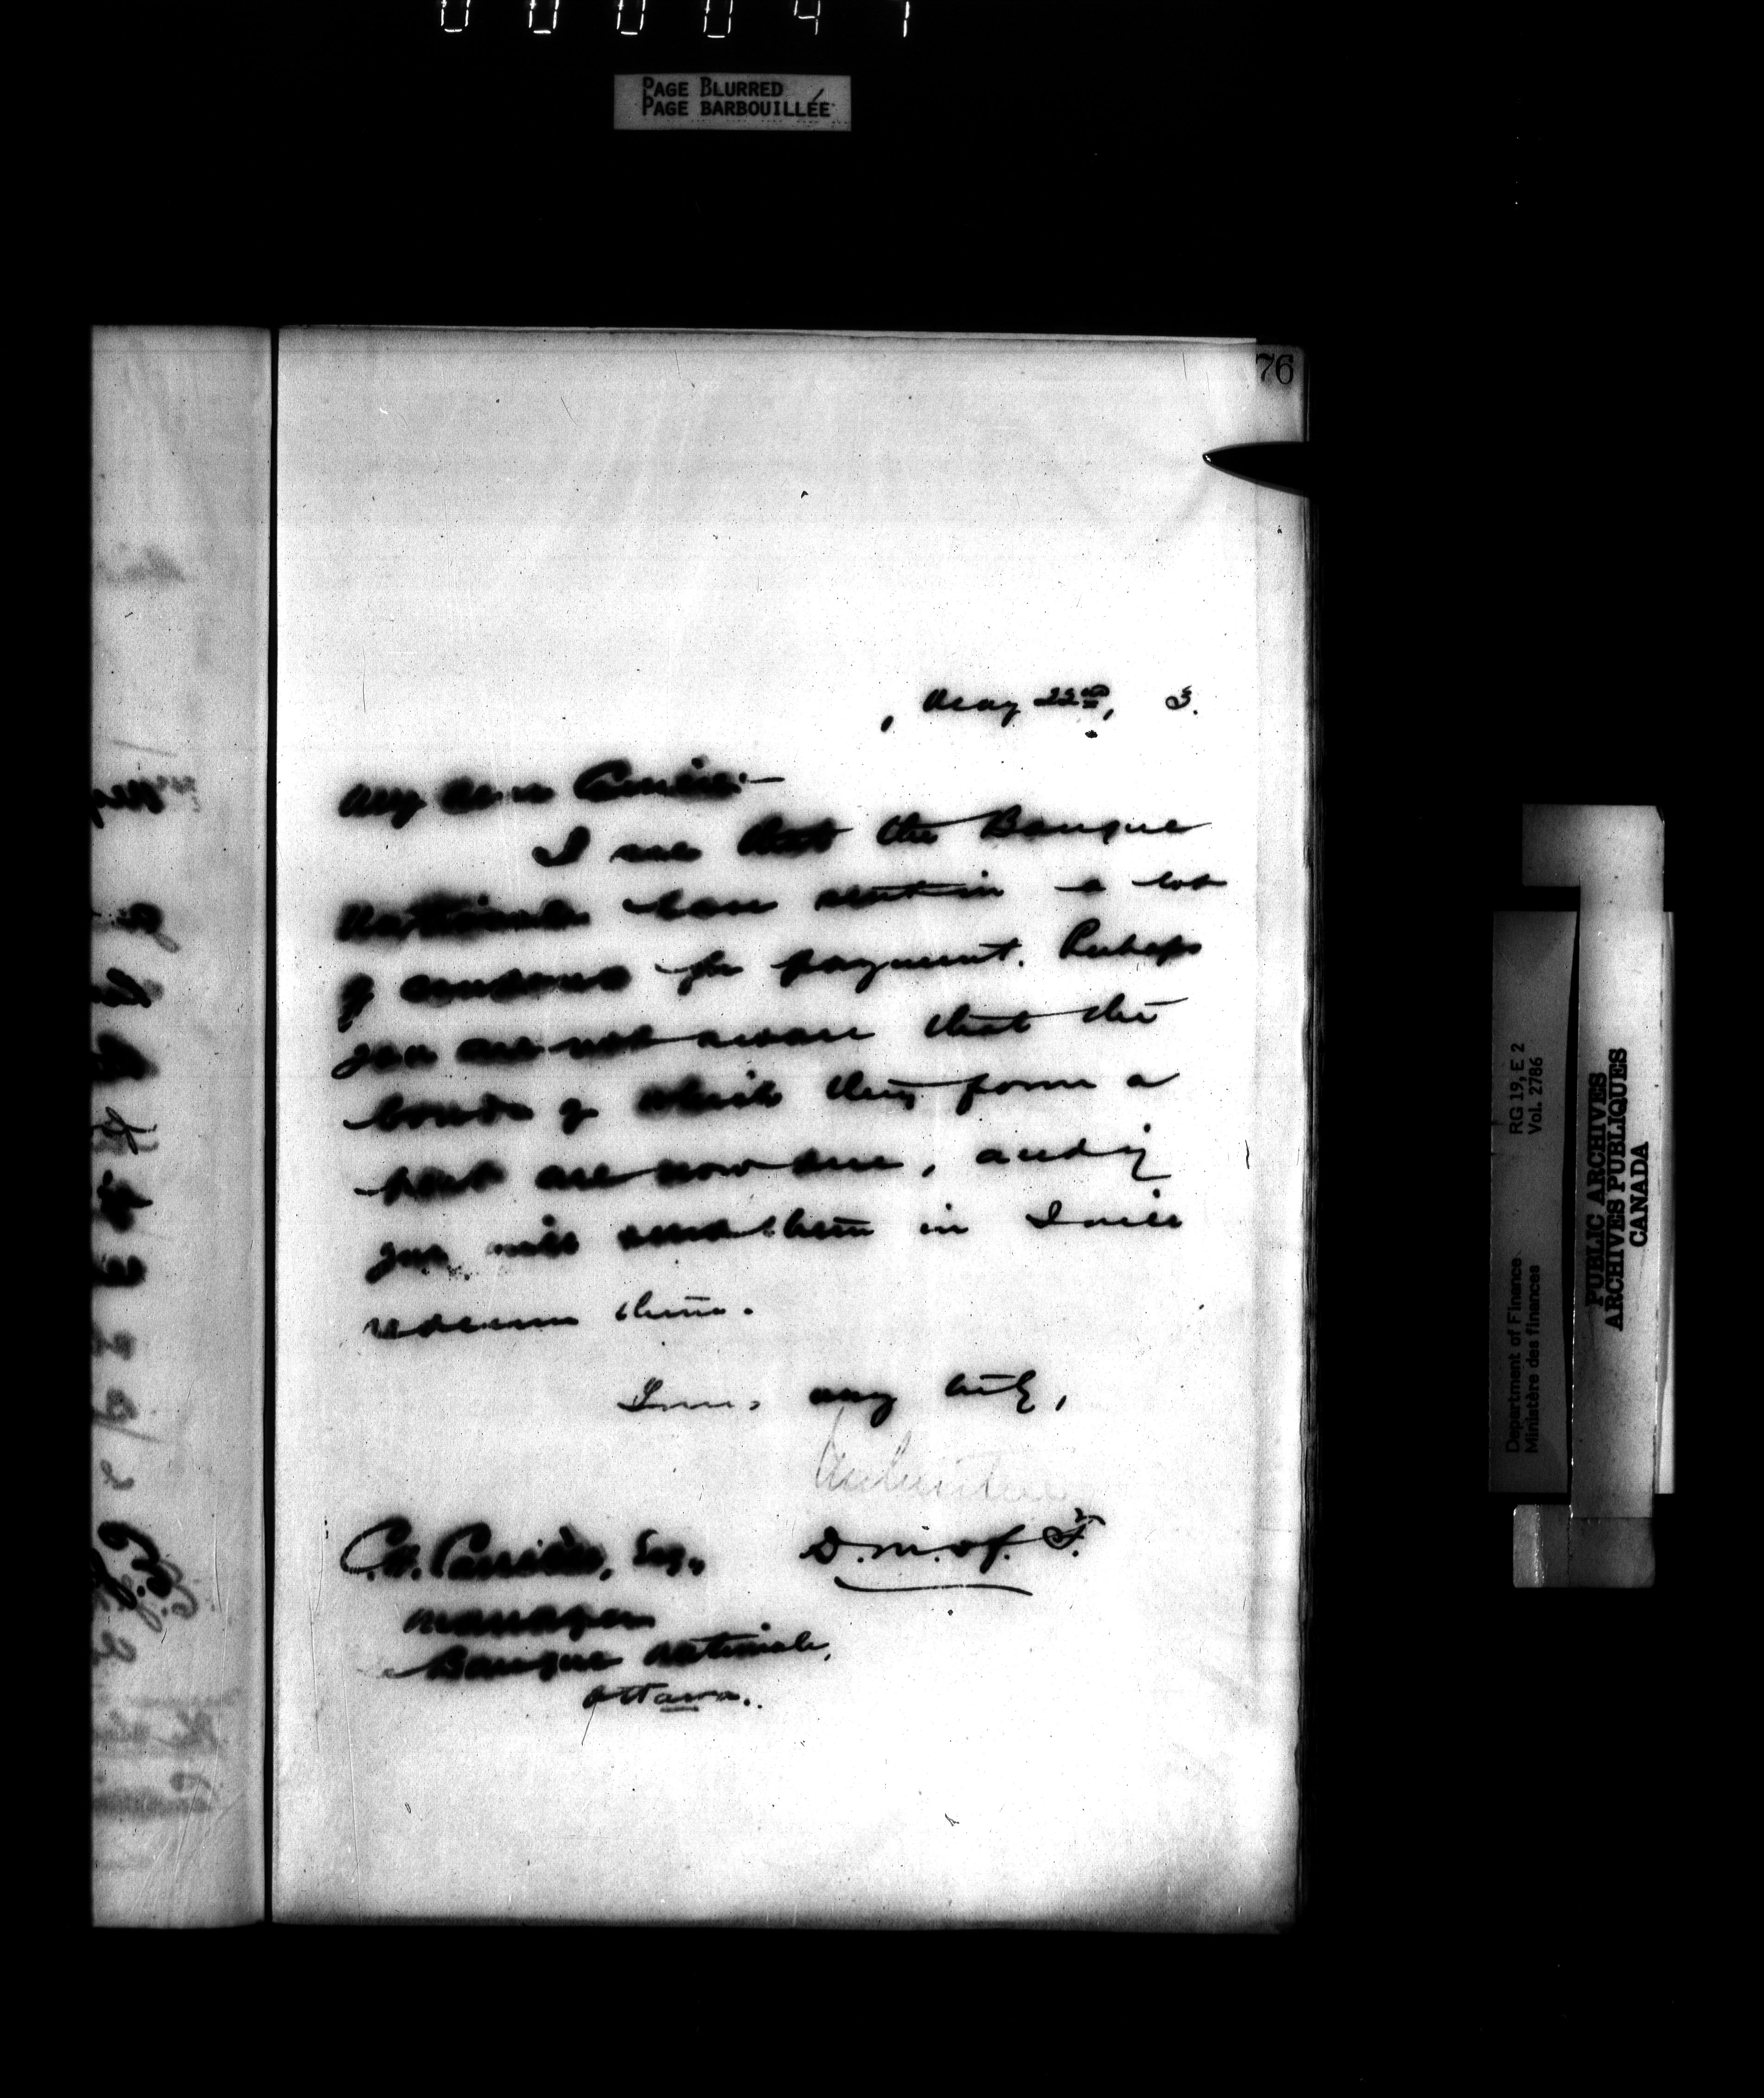 000047
PAGE BLURRED
PAGE BARBOUILLÉE
76
, May 22nd, 3.
My dear Carrière:—
I see that the Banque
Nationale have sent in a lot
of coupons for payment. Perhaps
you are not aware that the
bonds of which they form a
part are now due, and if
you will send them in I will
redeem them.
Yours very truly,
D.M. of F.
C. Carrière, Esq.,
Manager
Banque Nationale,
Ottawa.
Department of Finance
Ministère des finances
RG 19, E 2
Vol. 2786
PUBLIC ARCHIVES
ARCHIVES PUBLIQUES
CANADA